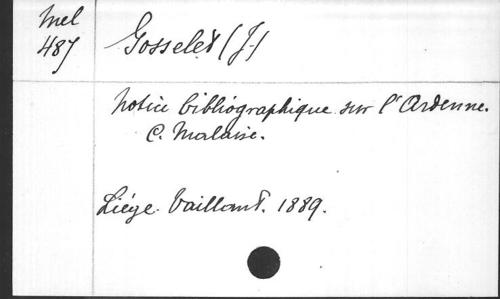 Mel
487
Gosselet (J.)
Notice bibliographique sur l'Ardenne.
C. Malaise.
Liége. Vaillant. 1889.